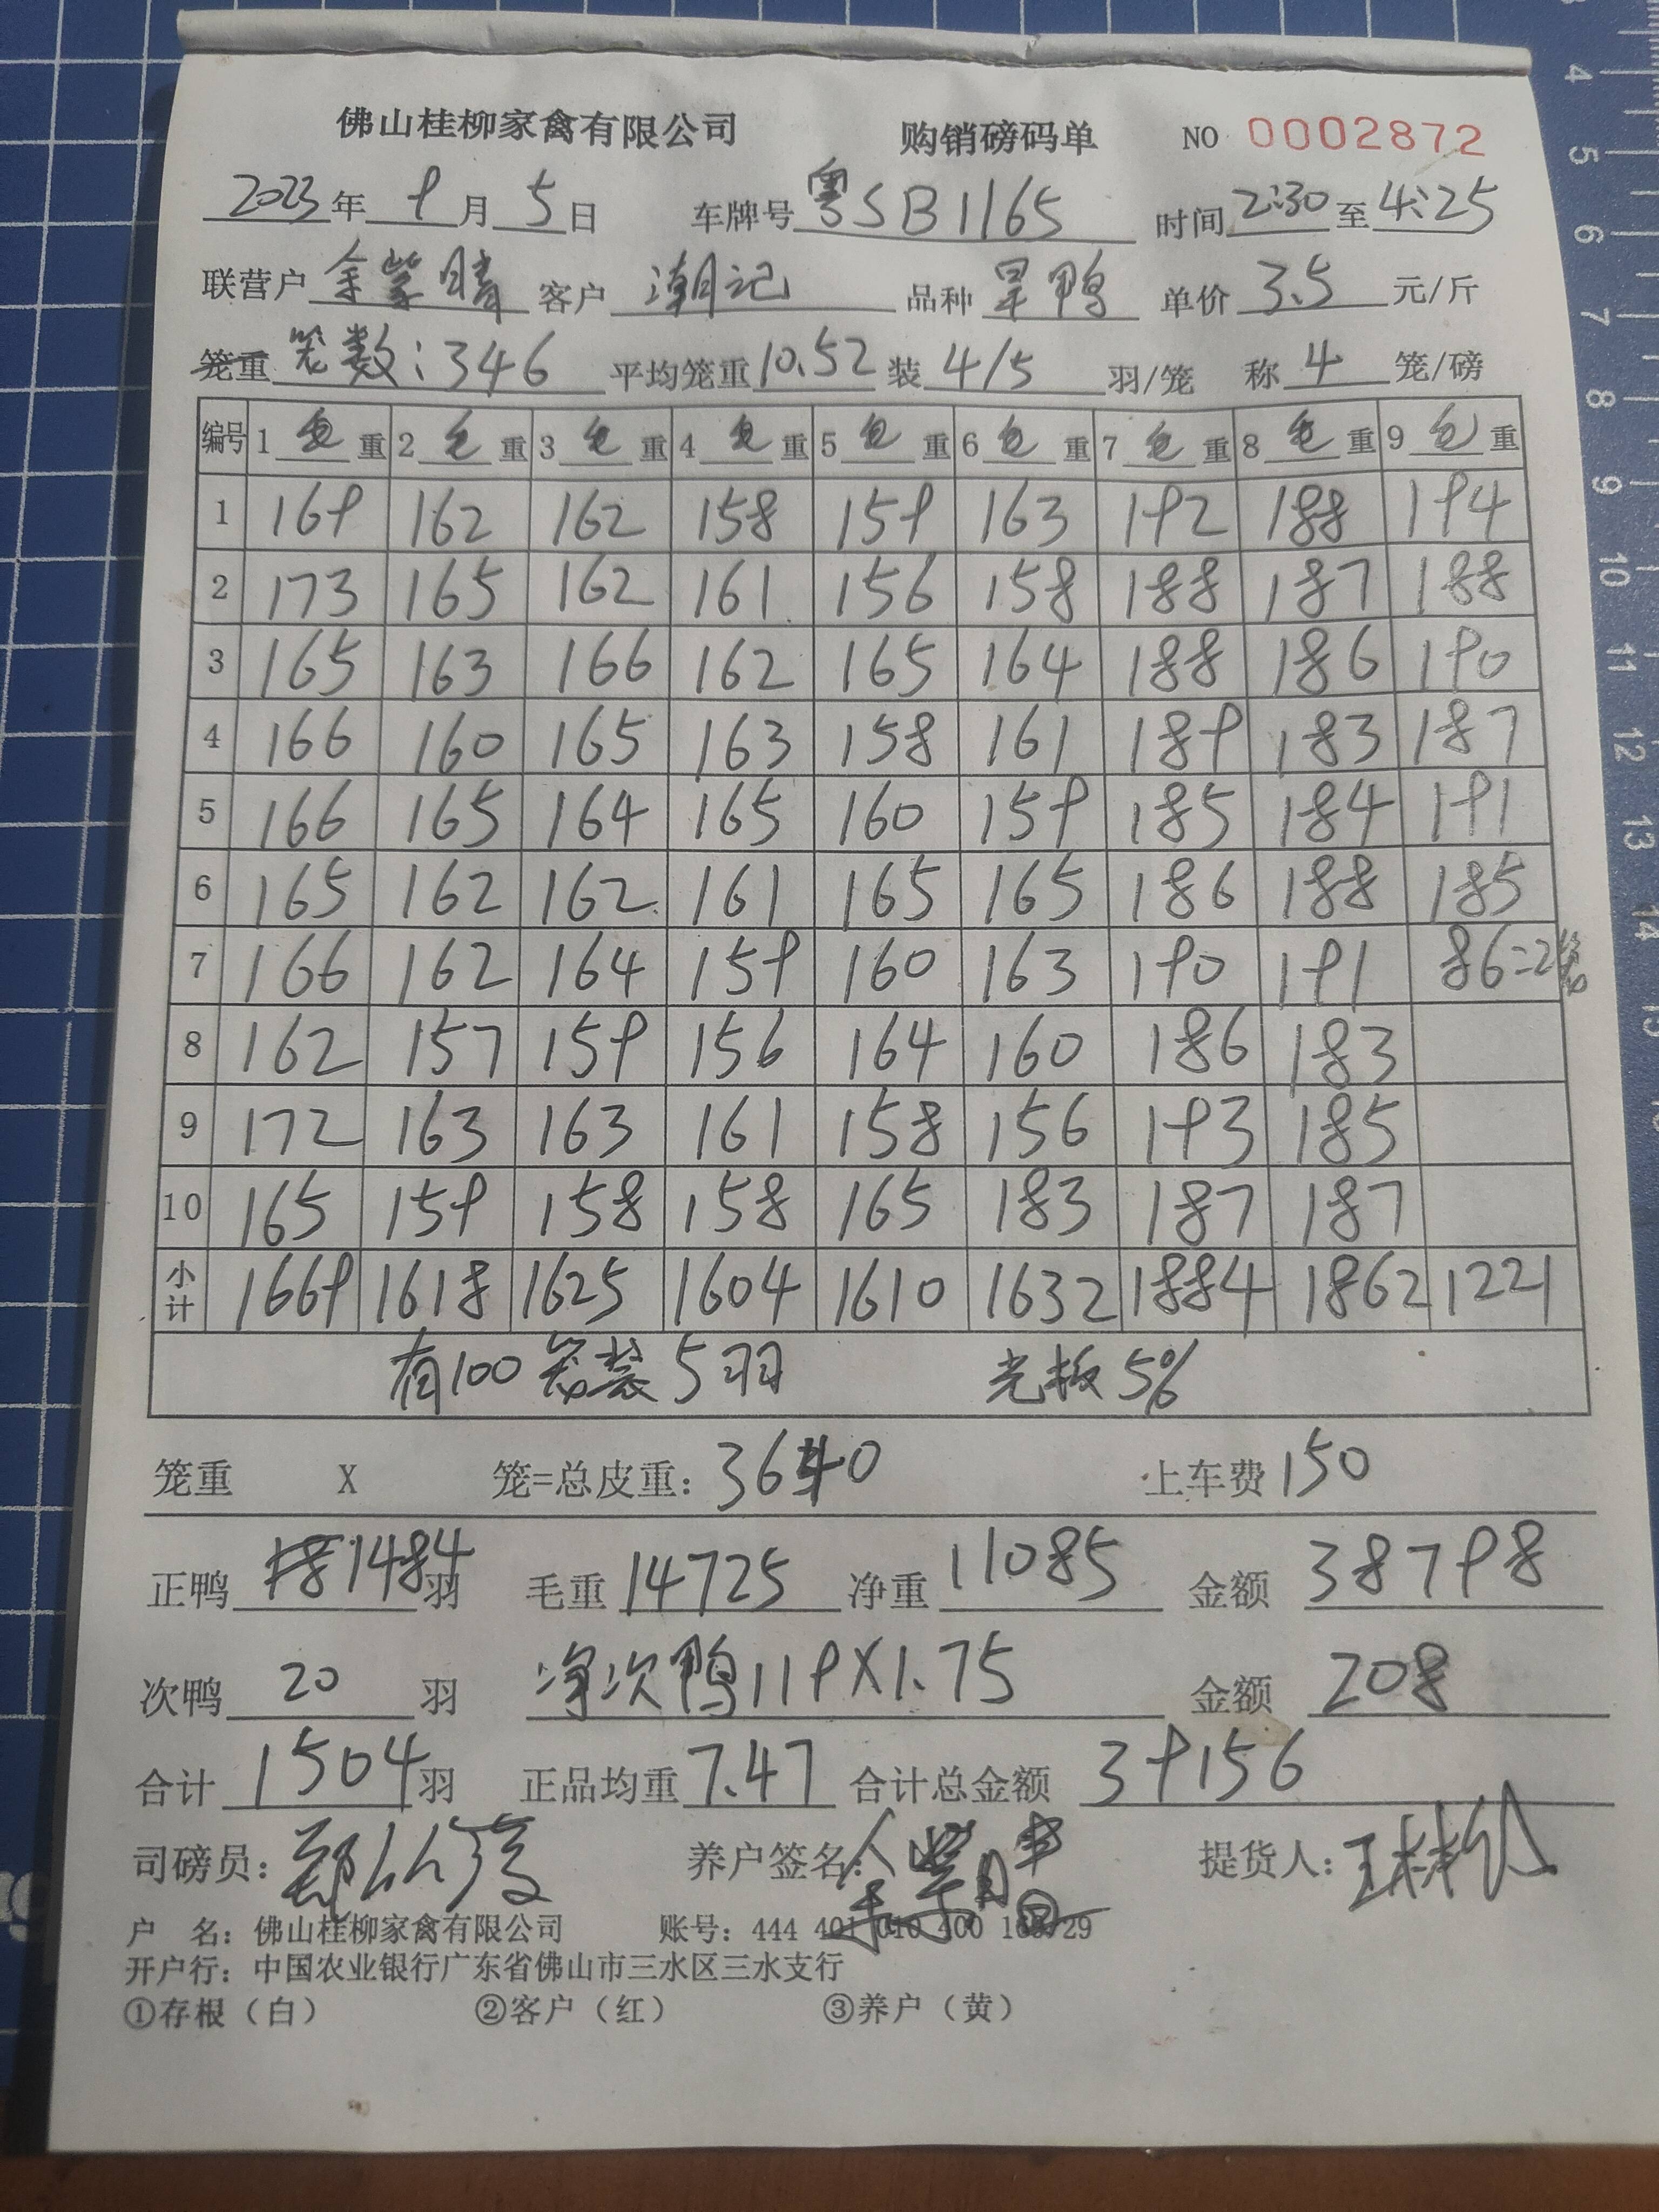 佛山桂柳家禽有限公司 购销磅码单 NO 0002872
2023年9月5日 车牌号粤SB1165 时间2:30至4:25
联营户余紫晴 客户潮记 品种旱鸭 单价3.5元/斤
笼重笼数:346 平均笼重10.52装4/5羽/笼 称4笼/磅
编号 1毛重 2毛重 3毛重 4毛重 5毛重 6毛重 7毛重 8毛重 9毛重
1 169 162 162 158 159 163 192 188 194
2 173 165 162 161 156 158 188 187 188
3 165 163 166 162 165 164 188 186 190
4 166 160 165 163 158 161 189 183 187
5 166 165 164 165 160 159 185 184 191
6 165 162 162 161 165 165 186 188 185
7 166 162 164 159 160 163 190 191 86=2笼
8 162 157 159 156 164 160 186 183
9 172 163 163 161 158 156 193 185
10 165 159 158 158 165 183 187 187
小计 1669 1618 1625 1604 1610 1632 1884 1862 1221
有100笼装5羽 光板5%
笼重 X 笼=总皮重:3640 上车费150
正鸭1484羽 毛重14725 净重11085 金额38798
次鸭20羽 净次鸭119X1.75 金额208
合计1504羽 正品均重7.47 合计总金额39156
司磅员: 养户签名: 提货人:
户 名:佛山桂柳家禽有限公司 账号:444 401 010 400
开户行:中国农业银行广东省佛山市三水区三水支行
①存根(白) ②客户(红) ③养户(黄)
4
5
6
7
8
9
10
11
12
13
14
15